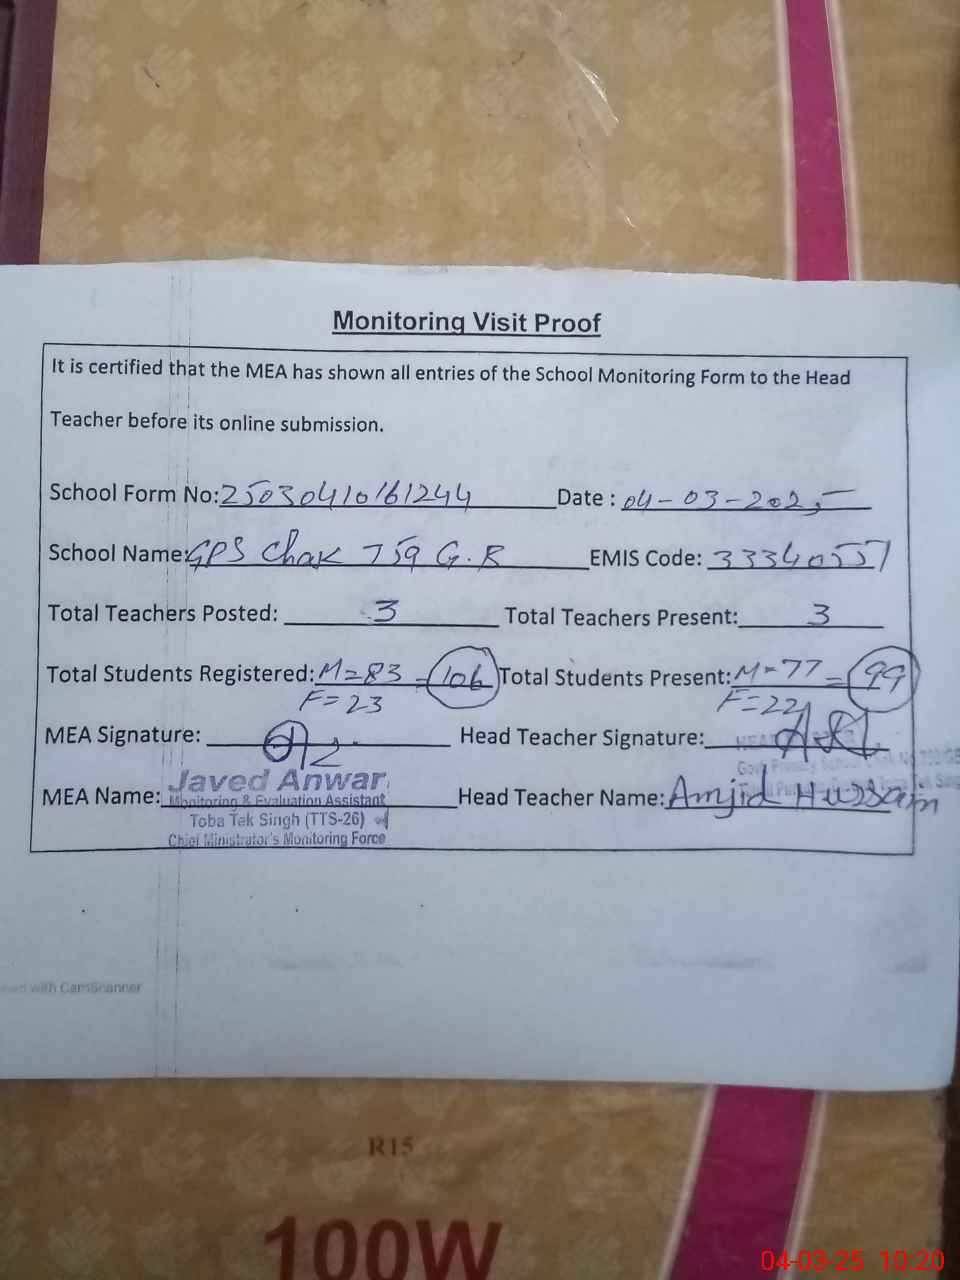 Monitoring Visit Proof
It is certified that the MEA has shown all entries of the School Monitoring Form to the Head
Teacher before its online submission.
School Form No: 25030410161244 Date : 04-03-2025
School Name: GPS Chak 759 G.B EMIS Code: 33340557
Total Teachers Posted: 3 Total Teachers Present: 3
Total Students Registered: M=83 = 106 Total Students Present: M=77 = 99
F=23 F=22
MEA Signature: Head Teacher Signature:
MEA Name: Javed Anwar Head Teacher Name: Amjid Hussain
Monitoring & Evaluation Assistant
Toba Tek Singh (TTS-26)
Chief Ministrator's Monitoring Force
with CamScanner
R15
100W
04-03-25 10:20